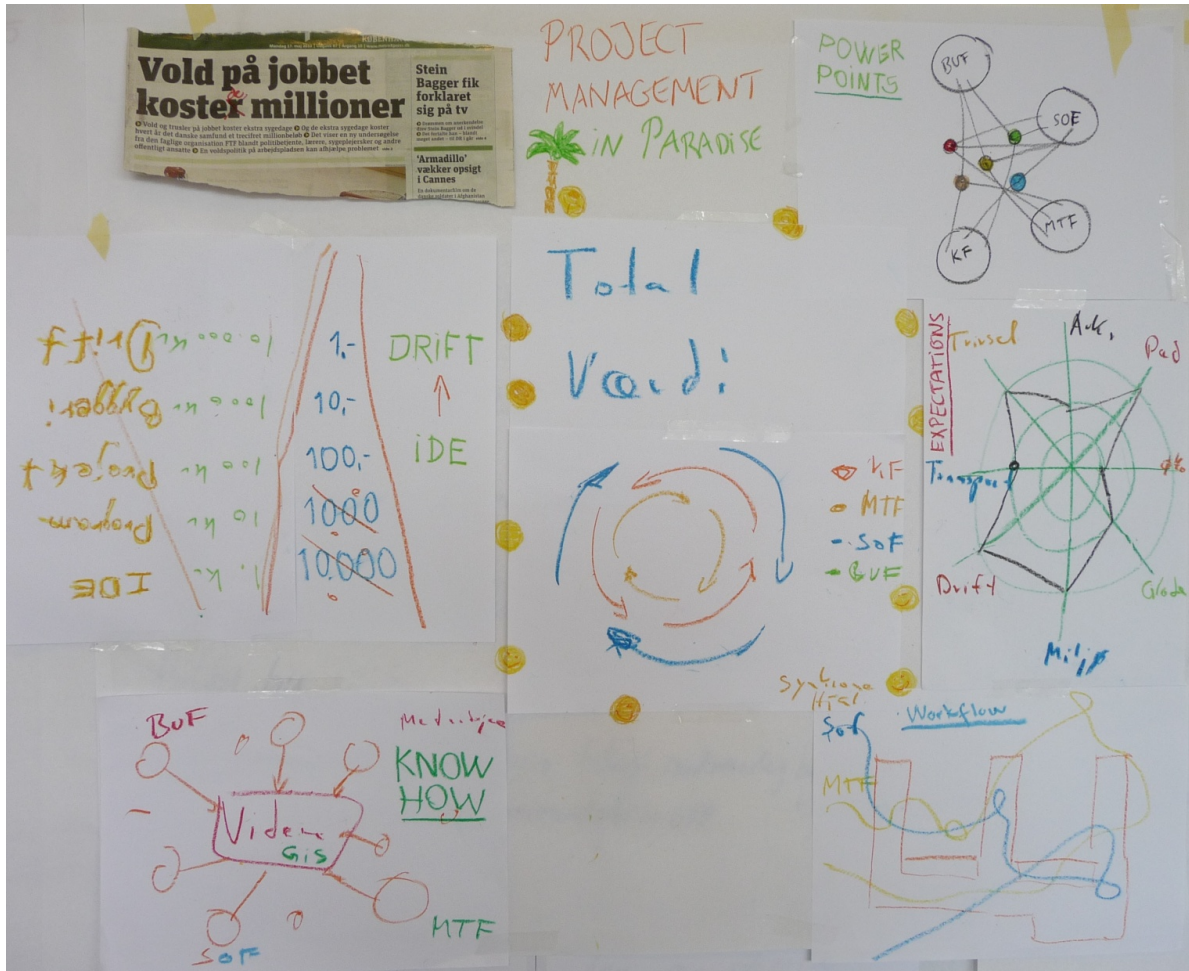 Vold på jobbet
koster millioner
de
Vold og trusler på jobbet koster ekstra sygedage Og de ekstra sygedage koster
hvert år det danske samfund et trecifret millionbeløb Det viser en ny undersøgelse
fra den faglige organisation FTF blandt politibetjente, lærere, sygeplejersker og andre
offentligt ansatte En voldspolitik på arbejdspladsen kan afhjælpe problemet
Stein
Bagger fik
forklaret
sig på tv
'Armadillo'
vækker opsigt
i Cannes
PROJECT
MANAGEMENT
iN PARADiSE
POWER
POINTS
BUF
SOF
MTF
KF
Drift 10.000 kr
Byggeri 1000 kr
Projekt 100 kr
Program 10 kr
IDE 1. kr
1,-
10,-
100,-
1000
10.000
DRiFT
iDE
Total
Værdi
KF
MTF
SOF
BUF
EXPECTATIONS
Trivsel
Ark.
Pæd
Transport
Drift
Miljø
BUF
KNOW
HOW
Viden
GiS
SOF
MTF
Workflow
Sof
MTF